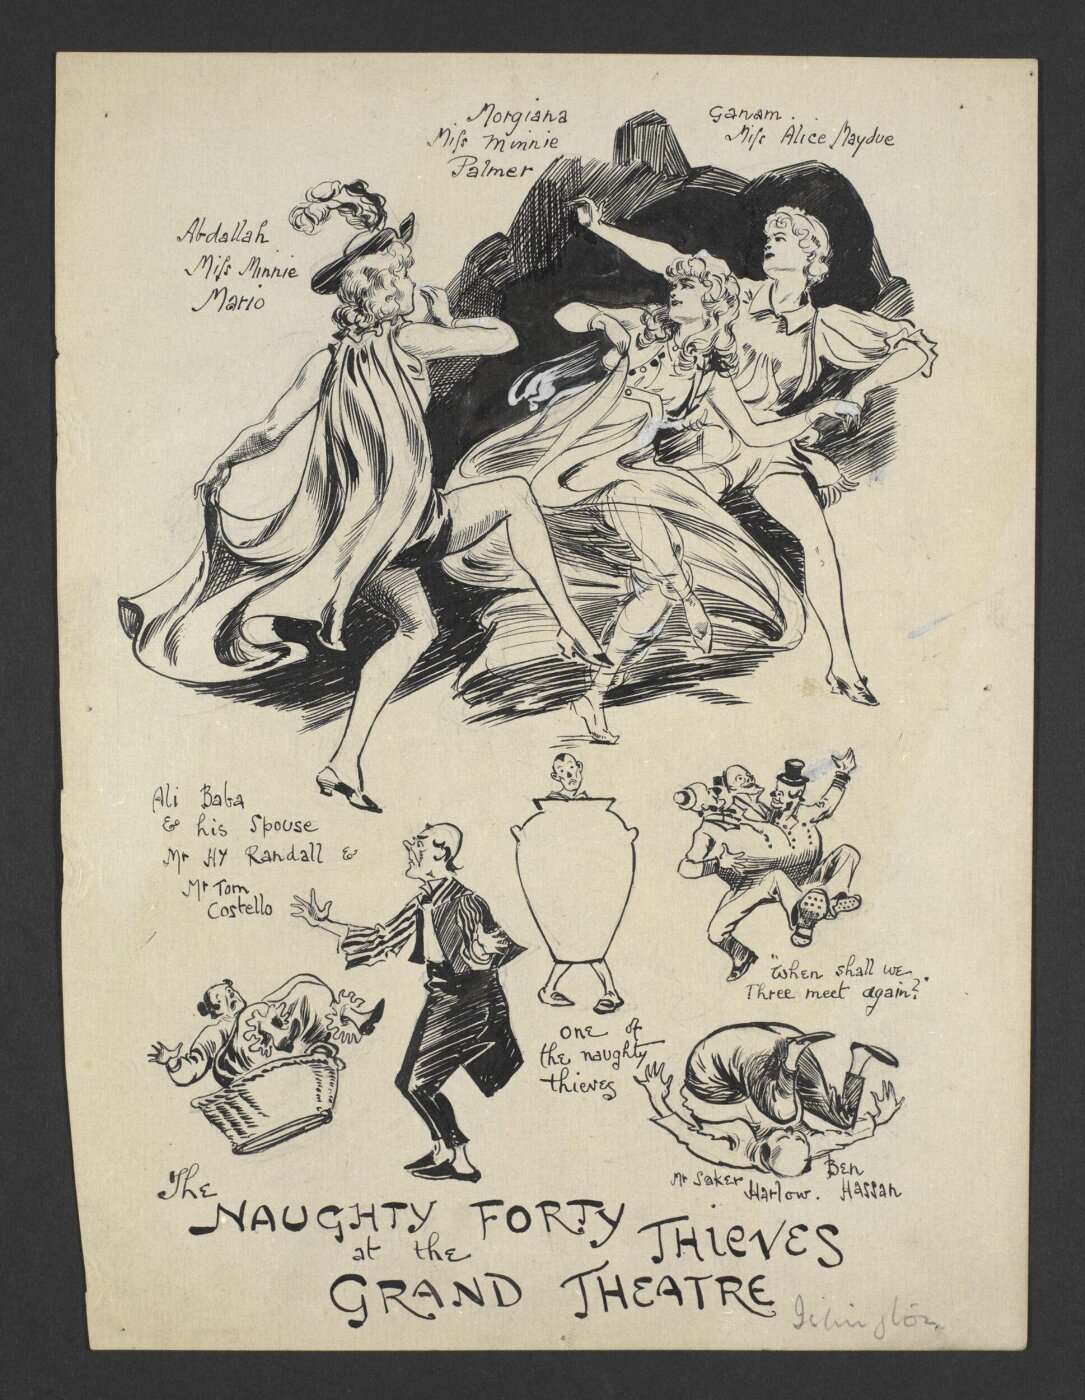 Morgiana
Miss Minnie
Palmer
Ganam.
Miss Alice Maydue
Abdallah
Miss Minnie
Mario
Ali Baba
& his Spouse
Mr HY Randall &
Mr Tom
Costello
"When shall we
Three meet again?"
one of
the naughty
thieves
Mr Saker
Harlow.
Ben
Hassan
The
NAUGHTY FORTY
THIEVES
at the
GRAND THEATRE
Islington